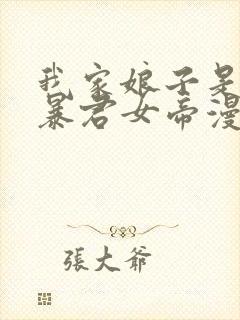 我家娘子是
暴君女帝漫
張大爺